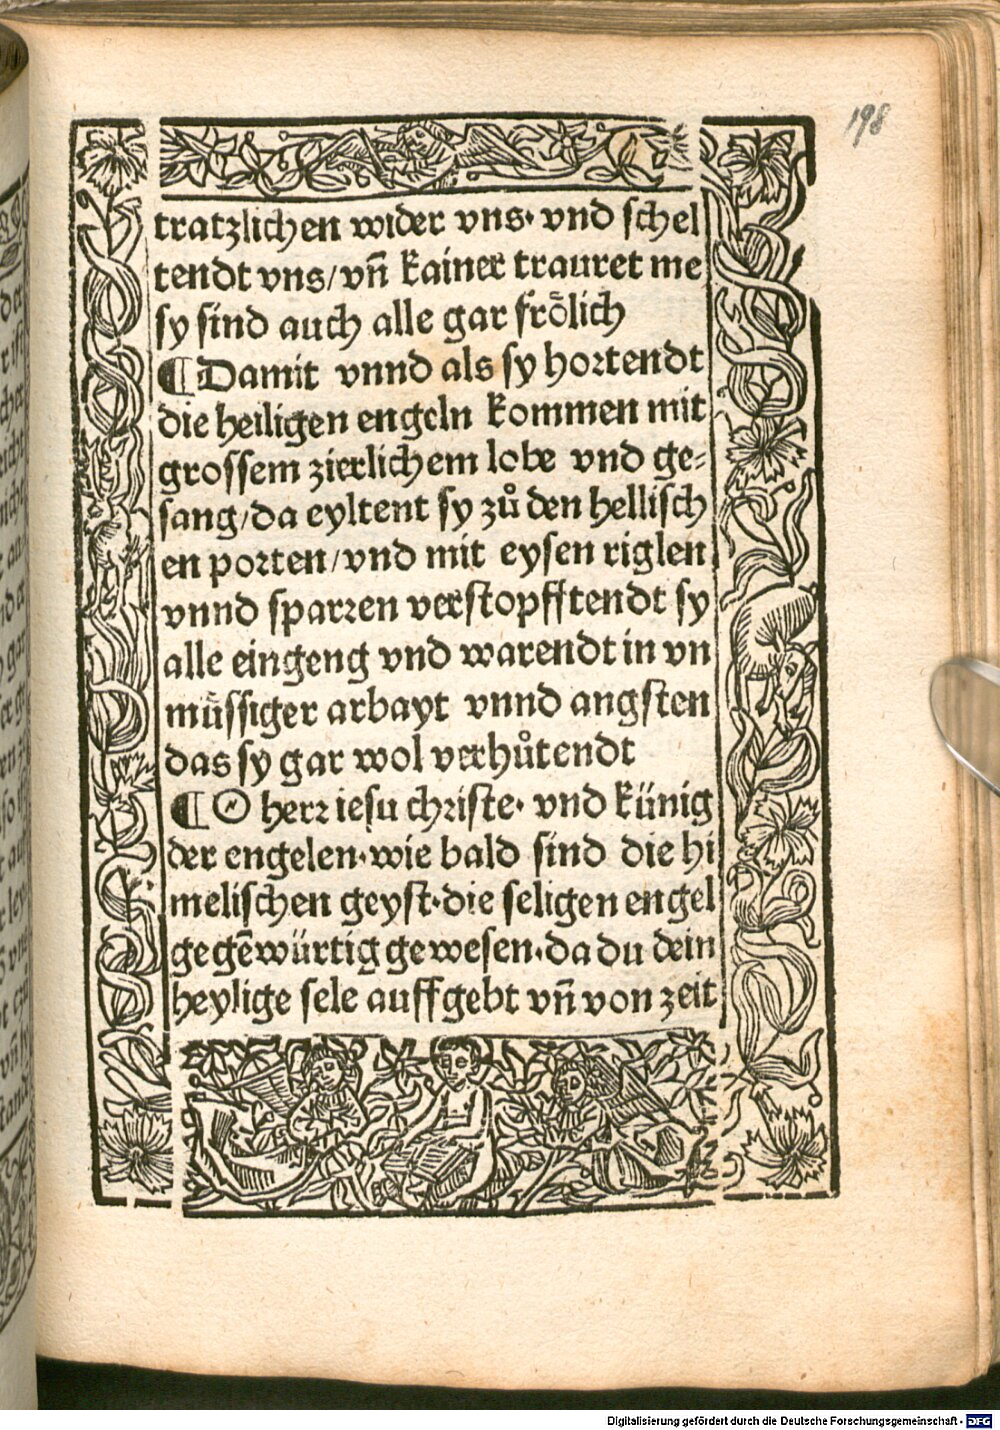 198
tratzlichen wider vns· vnd schel
tendt vns/vn̄ kainer trauret me
sy sind auch alle gar froͤlich
¶Damit vnnd als sy hortendt
die heiligen engeln kommen mit
grossem zierlichem lobe vnd ge⸗
sang/da eyltent sy zů den hellisch
en porten/vnd mit eysen riglen
vnnd sparren verstopfftendt sy
alle eingeng vnd warendt in vn
muͤssiger arbayt vnnd angsten
das sy gar wol verhůtendt
¶O herr iesu christe· vnd künig
der engelen·wie bald sind die hi
melischen geyst·die seligen engel
gegēwürtig gewesen·da du dein
heylige sele auffgebt vn̄ von zeit
Digitalisierung gefördert durch die Deutsche Forschungsgemeinschaft - DFG